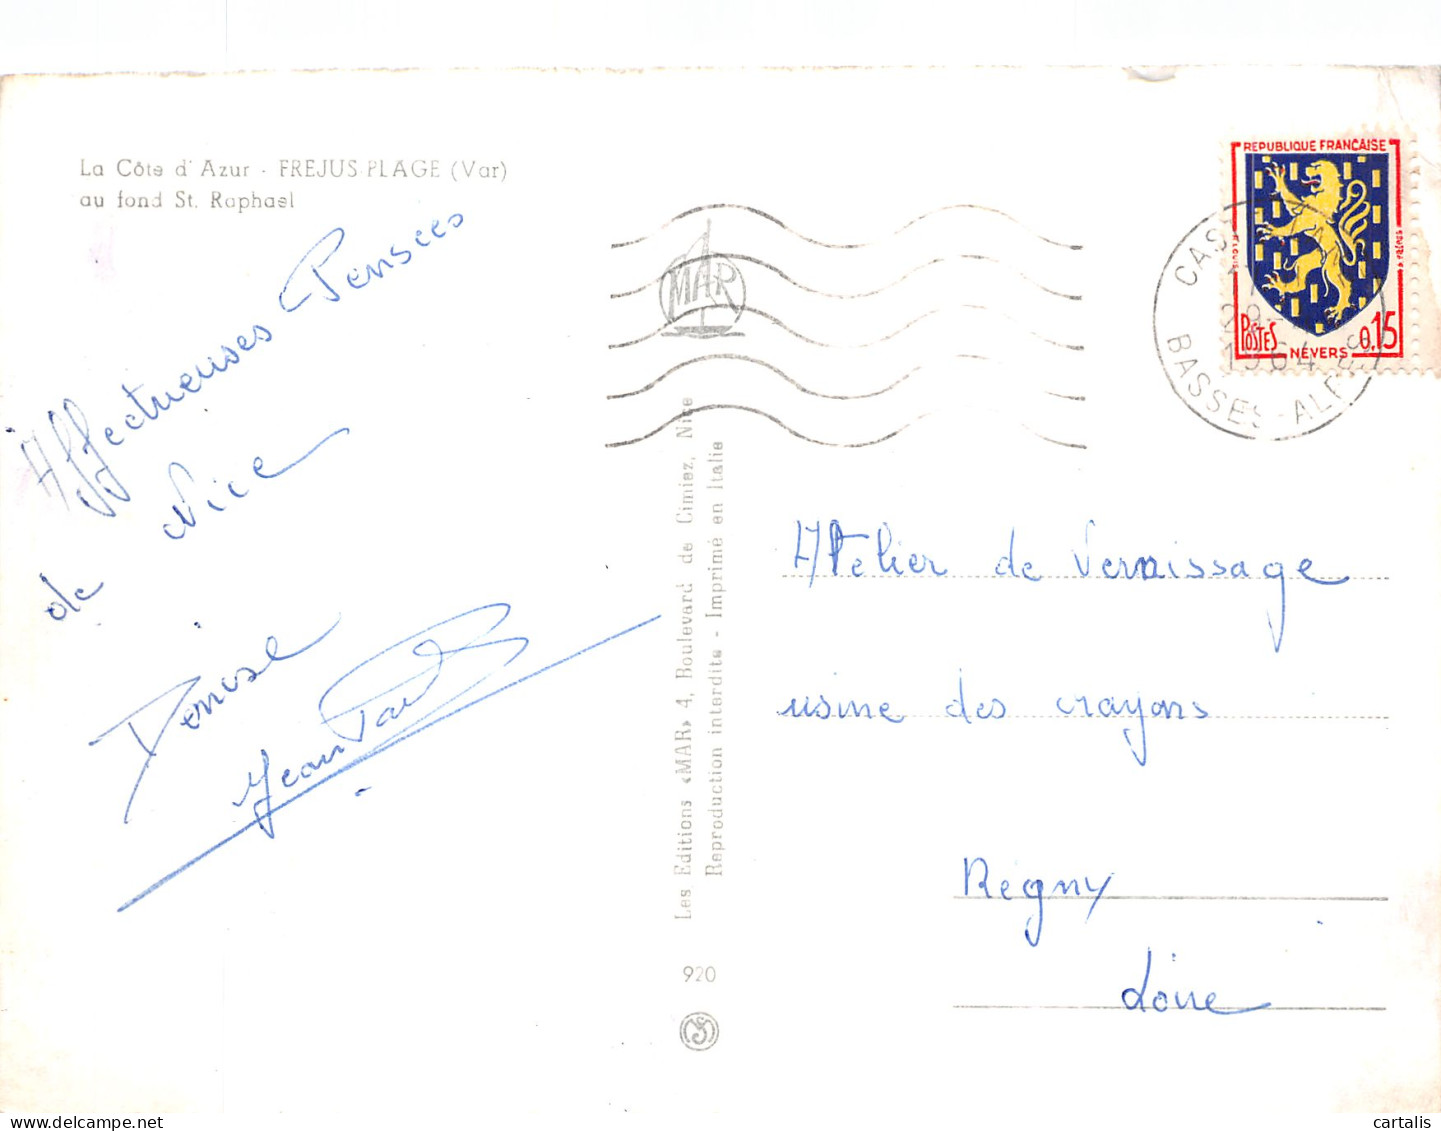 La Côte d'Azur - FRÉJUS-PLAGE (Var)
au fond St. Raphael
Affectueuses Pensées
de Nice
Denise
Jean Paul
MAR
Les Editions «MAR» 4, Boulevard de Cimiez, Nice
Reproduction interdite - Imprimé en Italie
920
REPUBLIQUE FRANÇAISE
POSTES
0,15
NEVERS
1964
BASSES-ALPES
Atelier de Vernissage
usine des crayons
Régny
Loire
cartalis